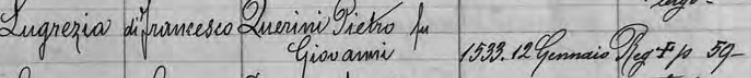 Lugrezia di Francesco Querini Pietro fu
Giovanni 1533.12 Gennaio Reg F p 59-